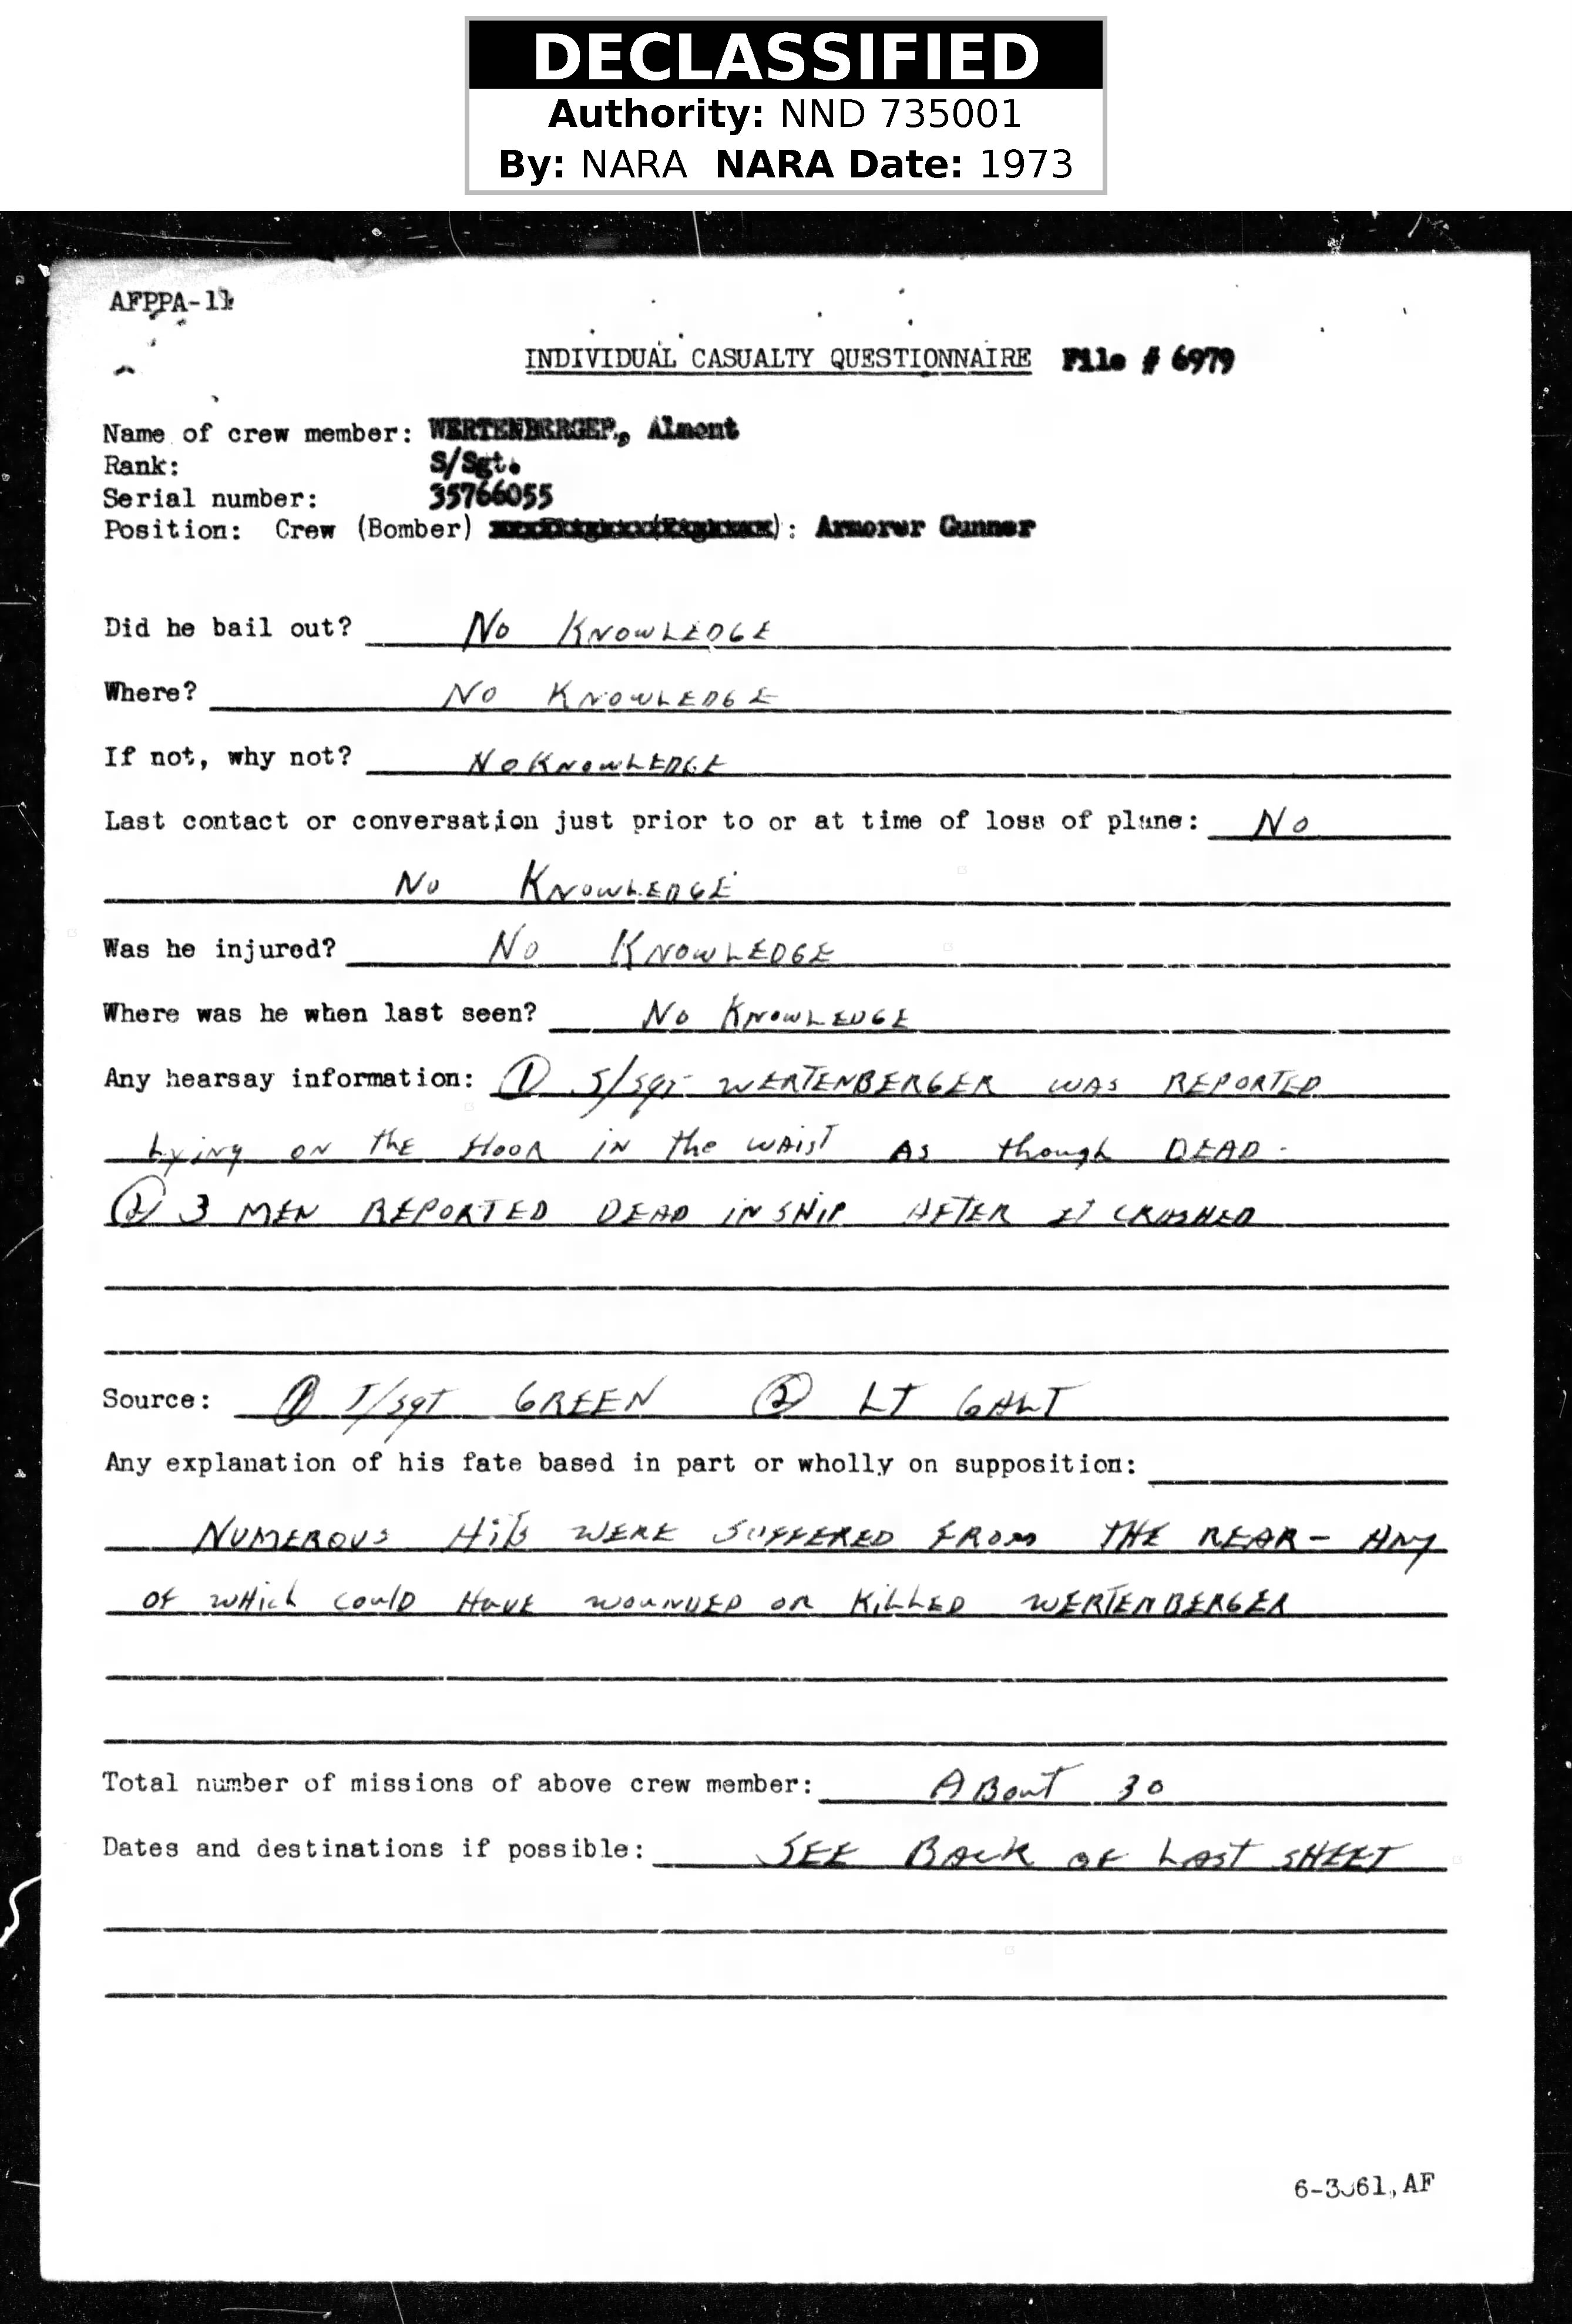 DECLASSIFIED
Authority: NND 735001
By: NARA NARA Date: 1973
AFPPA-11
INDIVIDUAL CASUALTY QUESTIONNAIRE File # 6979
Name of crew member: WERTENBERGER, Almont
Rank: S/Sgt.
Serial number: 35766055
Position: Crew (Bomber) ): Armorer Gunner
Did he bail out? No KNOWLEDGE
Where? No KNOWLEDGE
If not, why not? No KNOWLEDGE
Last contact or conversation just prior to or at time of loss of plane: No
No KNOWLEDGE
Was he injured? No KNOWLEDGE
Where was he when last seen? No KNOWLEDGE
Any hearsay information: ① S/Sgt WERTENBERGER WAS REPORTED
Lying ON the floor IN the WAIST AS though DEAD -
② 3 MEN REPORTED DEAD IN SHIP AFTER IT CRASHED
Source: ① T/Sgt GREEN ② LT GALT
Any explanation of his fate based in part or wholly on supposition:
NUMEROUS Hits WERE SUFFERED FROM THE REAR - ANY
OF WHICH COULD HAVE WOUNDED OR KILLED WERTENBERGER
Total number of missions of above crew member: ABOUT 30
Dates and destinations if possible: SEE BACK OF LAST SHEET
AF